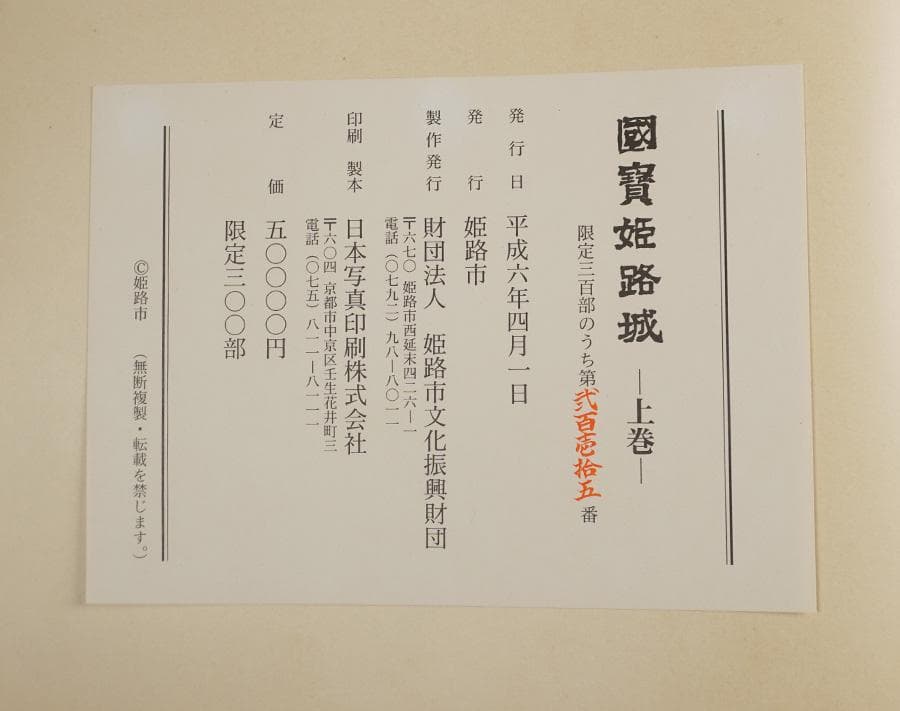 國寶姫路城 ―上巻―
限定三百部のうち第弐百壱拾五番
発行日 平成六年四月一日
発行 姫路市
製作発行 財団法人 姫路市文化振興財団
〒六七〇 姫路市西延末四二六―一
電話(〇七九二)九八―八〇一一
印刷 製本 日本写真印刷株式会社
〒六〇四 京都市中京区壬生花井町三
電話(〇七五)八一一―八一一一
定価 五〇〇〇〇円
限定三〇〇部
©姫路市 (無断複製・転載を禁じます。)